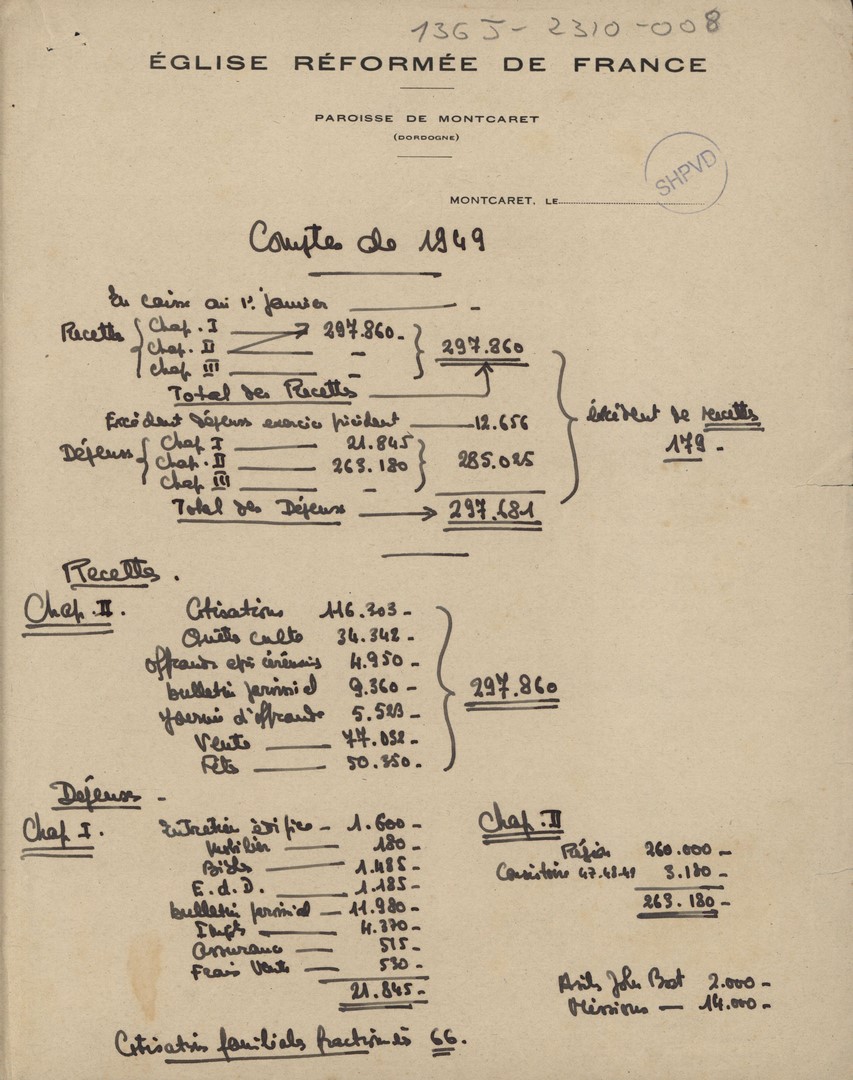 136 J - 2310 - 008
ÉGLISE RÉFORMÉE DE FRANCE
PAROISSE DE MONTCARET
(DORDOGNE)
SHPVD
MONTCARET, LE
Comptes de 1949
En caisse au 1er janvier -
Recettes { Chap. I 297.860 -
Chap. II -
Chap III -
297.860
Total des Recettes
Excédent dépenses exercice précédent 12.656
Dépenses { Chap I 21.845
Chap. II 263.180
Chap III -
285.025
Total des Dépenses 297.681
excédent de recettes
179 -
Recettes.
Chap. II. Cotisations 116.303 -
Quêtes culte 34.342 -
offrandes cérémonies 4.950 -
bulletin paroissial 9.360 -
journée d'offrande 5.523 -
Vente 77.032 -
Fête 50.350 -
297.860
Dépenses -
Chap I. Entretien édifice - 1.600 -
Mobilier 180 -
Bible 1.485 -
E.d.D. 1.185 -
bulletin paroissial - 11.980 -
Impôts 4.370 -
Assurance 515 -
Frais Vente 530 -
21.845 -
Chap. II
Région 260.000 -
Consistoire 47.48.49 3.180 -
263.180 -
Asile John Bost 2.000 -
Missions - 14.000 -
Cotisations familiales fractionnées 66.